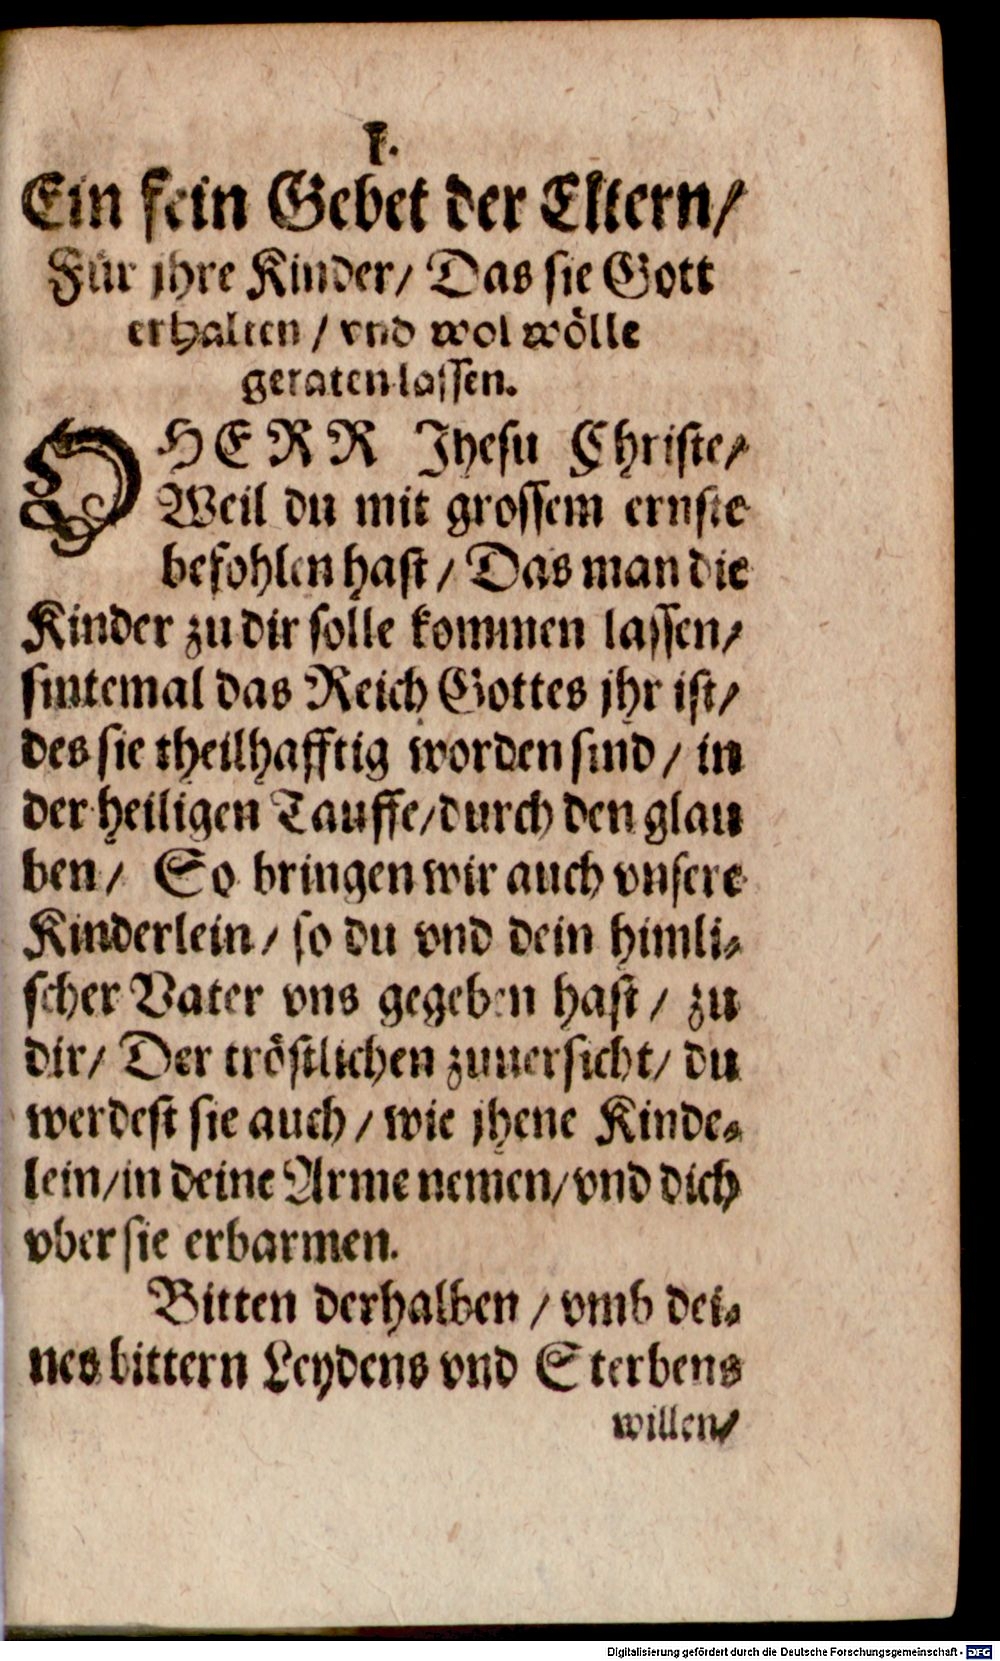 I.
Ein fein Gebet der Eltern/
Für jhre Kinder/ Das sie Gott
erhalten / vnd wol wölle
geraten lassen.
O HERR Jhesu Christe/
Weil du mit grossem ernste
befohlen hast / Das man die
Kinder zu dir solle kommen lassen/
sintemal das Reich Gottes jhr ist/
des sie theilhafftig worden sind / in
der heiligen Tauffe/durch den glau
ben/ So bringen wir auch vnsere
Kinderlein / so du vnd dein himli-
scher Vater vns gegeben hast / zu
dir/ Der tröstlichen zuuersicht/ du
werdest sie auch / wie jhene Kinde-
lein/in deine Arme nemen/vnd dich
vber sie erbarmen.
Bitten derhalben / vmb dei-
nes bittern Leydens vnd Sterbens
willen/
Digitalisierung gefördert durch die Deutsche Forschungsgemeinschaft - DFG